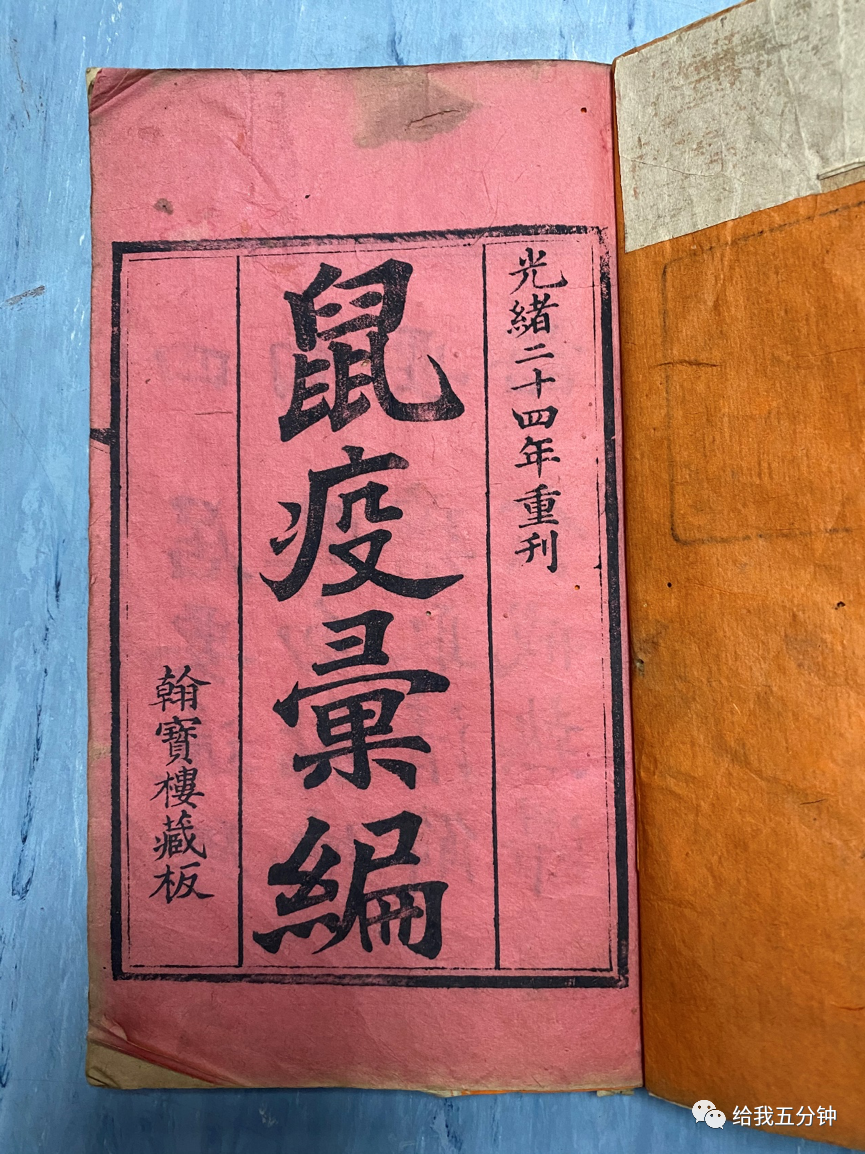 光緒二十四年重刊
鼠疫彙編
翰寶樓藏板
给我五分钟